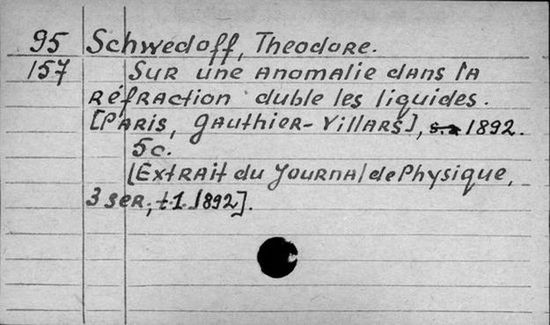 95 Schwedoff, Theodore.
157 Sur une anomalie dans la
réfraction duble les liquides.
[Paris, Gauthier-Villars], 1892.
5c.
[Extrait du Journal de Physique,
3 ser, t.1. 1892].